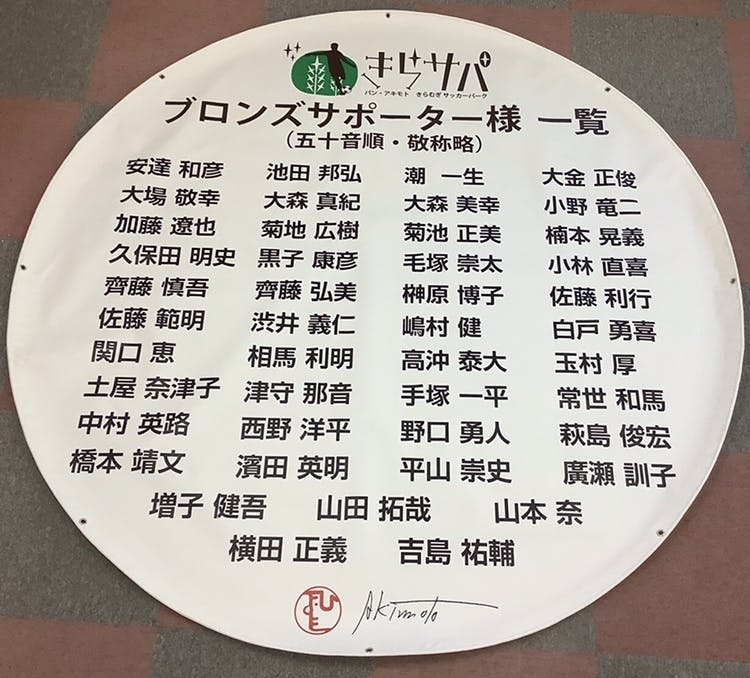 きらサパ
パン・アキモト きらむぎサッカーパーク
ブロンズサポーター様 一覧
(五十音順・敬称略)
安達 和彦 池田 邦弘 潮 一生 大金 正俊
大場 敬幸 大森 真紀 大森 美幸 小野 竜二
加藤 遼也 菊地 広樹 菊池 正美 楠本 晃義
久保田 明史 黒子 康彦 毛塚 崇太 小林 直喜
齊藤 慎吾 齊藤 弘美 榊原 博子 佐藤 利行
佐藤 範明 渋井 義仁 嶋村 健 白戸 勇喜
関口 恵 相馬 利明 高沖 泰大 玉村 厚
土屋 奈津子 津守 那音 手塚 一平 常世 和馬
中村 英路 西野 洋平 野口 勇人 萩島 俊宏
橋本 靖文 濱田 英明 平山 崇史 廣瀬 訓子
増子 健吾 山田 拓哉 山本 奈
横田 正義 吉島 祐輔
Akimoto